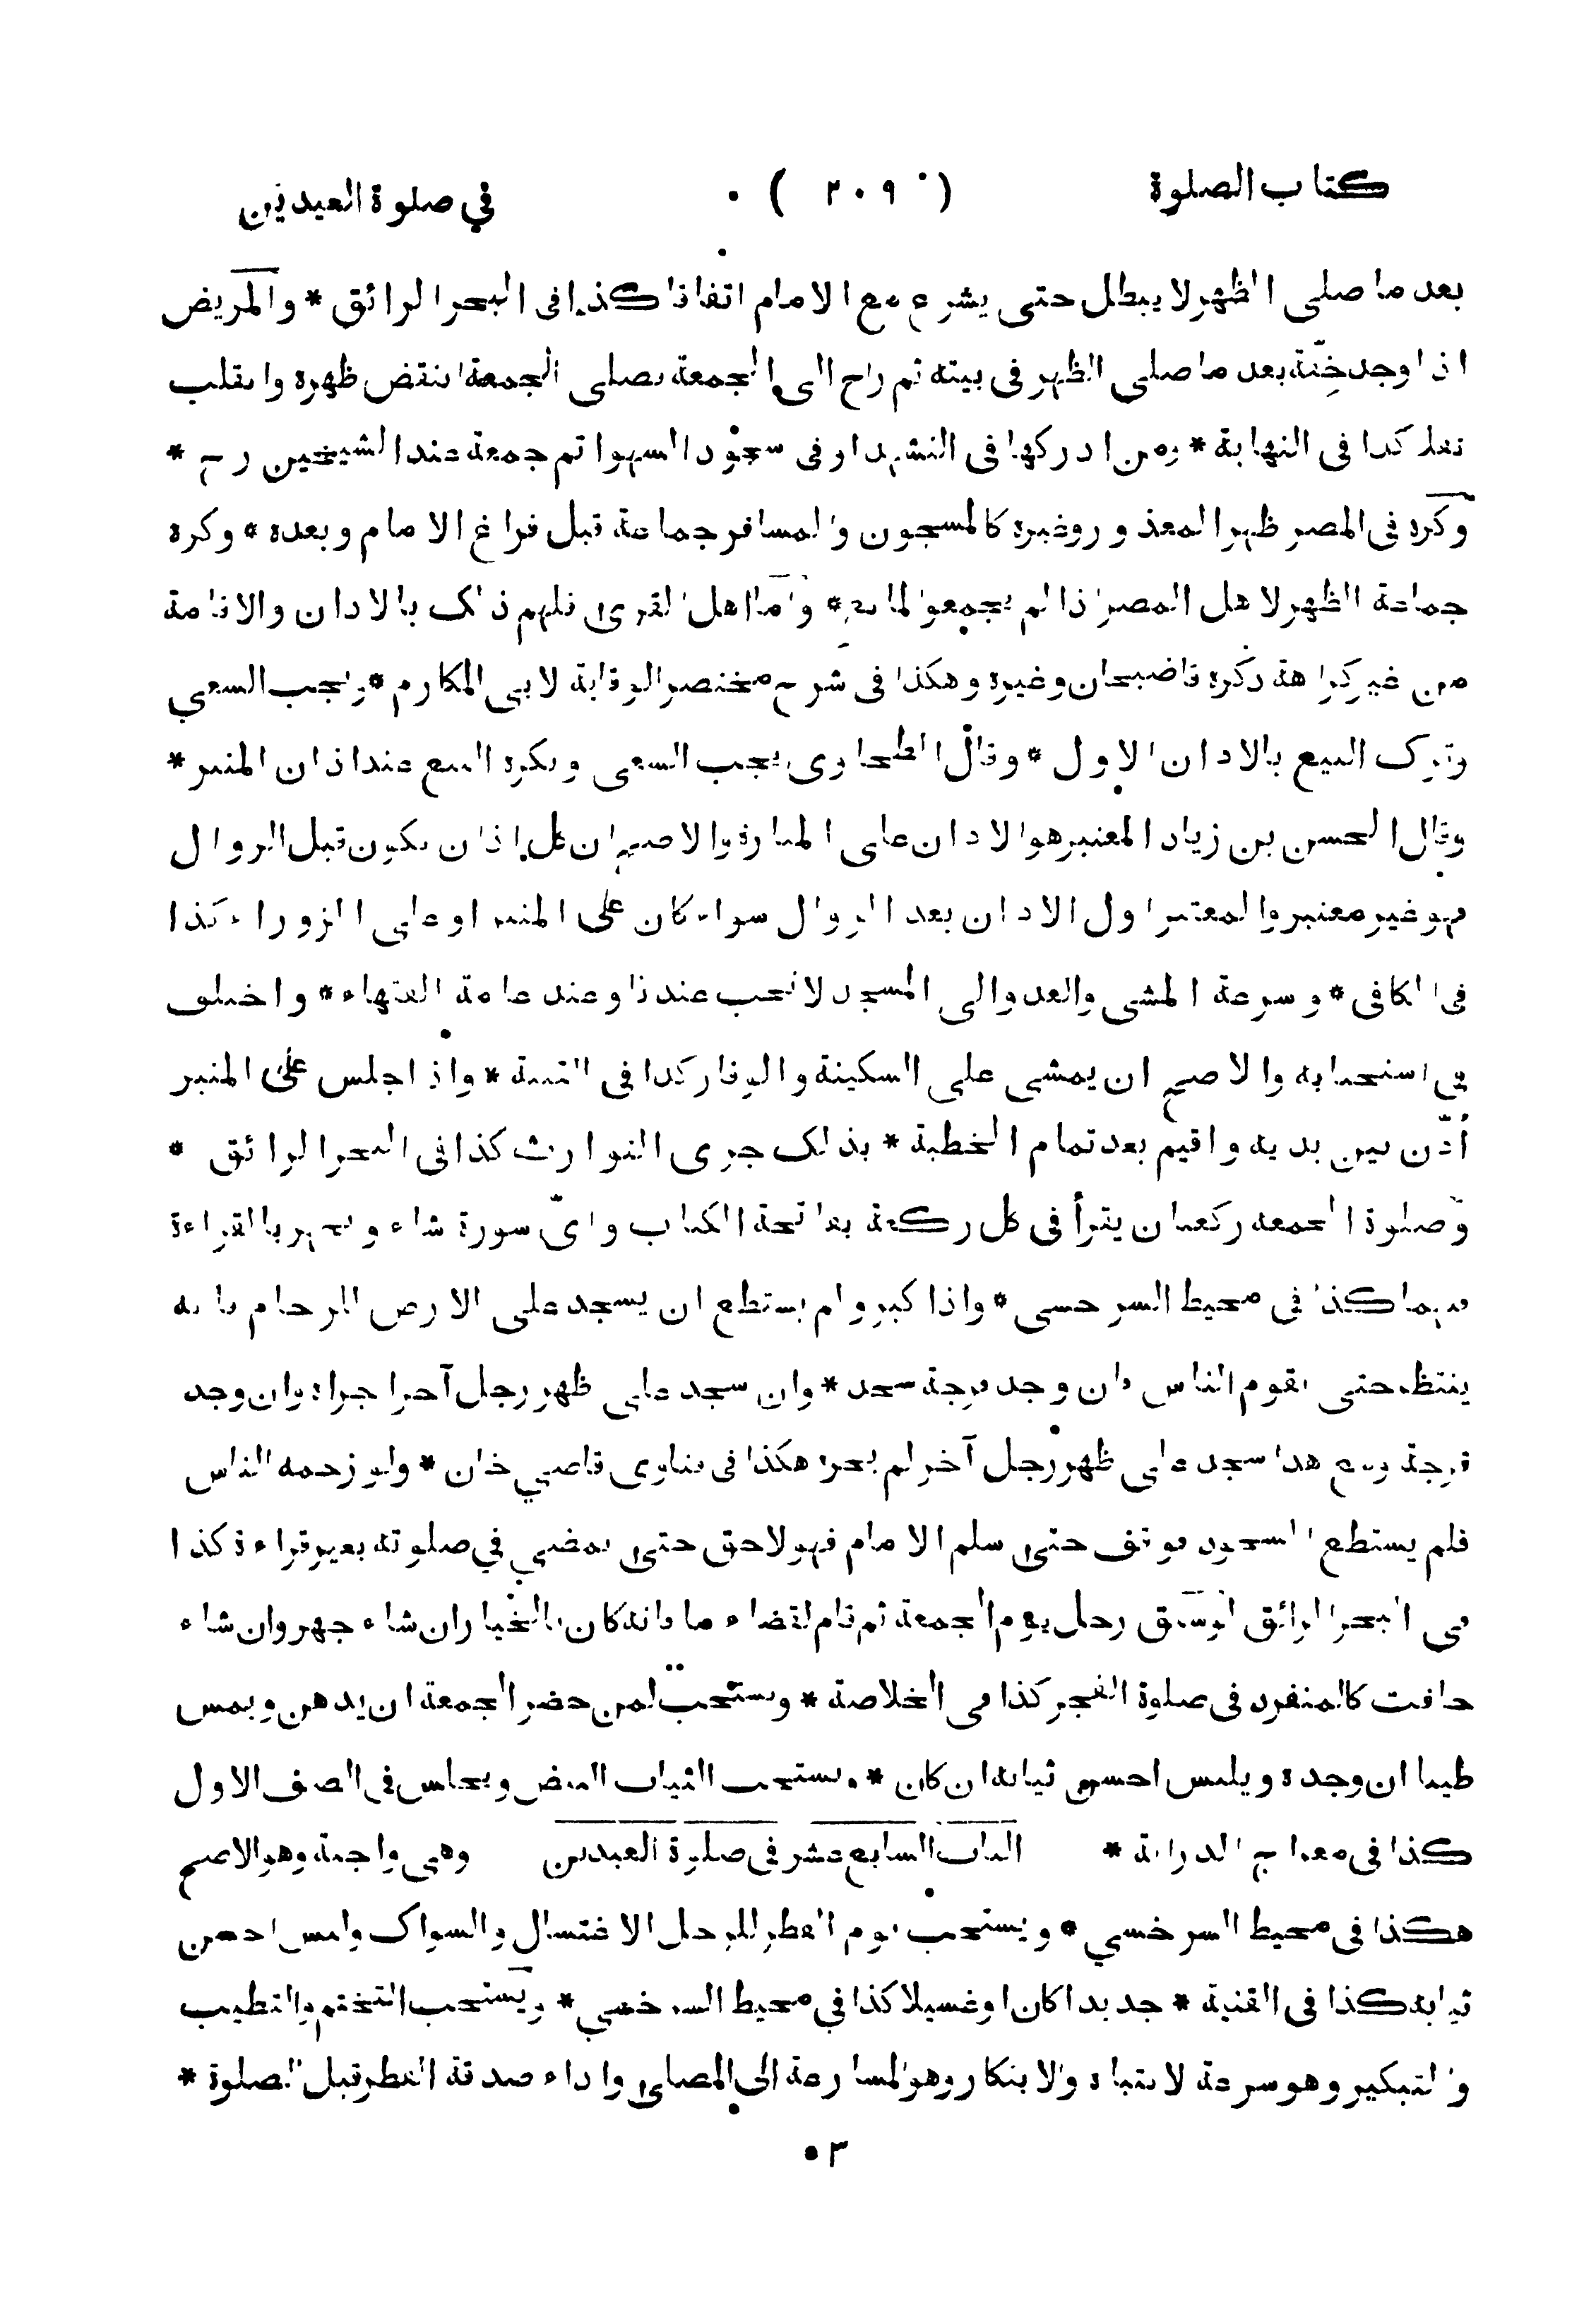 كتاب الصلوة ( ٢٠٩ ) في صلوة العيدين
بعد ما صلى الظهر لا يبطل حتى يشرع مع الامام اتفاقا كذا فى البحر الرائق * والمريض
اذا وجد خفّة بعد ما صلى الظهر فى بيته ثم راح الى الجمعة فصلى الجمعة انتقض ظهره وانقلب
نفلا كذا فى النهاية * ومن ادركها فى التشهد او فى سجود السهو اتم جمعة عند الشيخين رح *
وكره فى المصر ظهر المعذور وغيره كالمسجون والمسافر جماعة قبل فراغ الامام وبعده * وكره
جماعة الظهر لاهل المصر اذا لم يجمعوا لمانع * واما اهل القرى فلهم ذلك بالاذان والاقامة
من غير كراهة ذكره قاضيخان وغيره وهكذا فى شرح مختصر الوقاية لابى المكارم * ويجب السعى
وترك البيع بالاذان الاول * وقال الطحاوى يجب السعى ويكره البيع عند اذان المنبر *
وقال الحسن بن زياد المعتبر هو الاذان على المنارة والاصح ان كل اذان يكون قبل الزوال
فهو غير معتبر والمعتبر اول الاذان بعد الزوال سواء كان على المنبر او على الزوراء كذا
فى الكافى * وسرعة المشى والعدو الى المسجد لا تجب عندنا وعند عامة الفقهاء * واختلف
فى استحبابه والاصح ان يمشى على السكينة والوقار كذا فى القنية * واذا جلس على المنبر
أذّن بين يديه واقيم بعد تمام الخطبة * بذلك جرى التوارث كذا فى البحر الرائق *
وصلوة الجمعة ركعتان يقرأ فى كل ركعة بفاتحة الكتاب واىّ سورة شاء ويجهر بالقراءة
فيهما كذا فى محيط السرخسى * واذا كبر ولم يستطع ان يسجد على الارض للزحام فانه
ينتظر حتى يقوم الناس فان وجد فرجة سجد * وان سجد على ظهر رجل آخر اجزاه وان وجد
فرجة ومع هذا سجد على ظهر رجل آخر لم يجزه هكذا فى فتاوى قاضي خان * ولو زحمه الناس
فلم يستطع السجود فوقف حتى سلم الامام فهو لاحق حتى يمضي في صلوته بغير قراءة كذا
فى البحر الرائق لو سبق رجل يوم الجمعة ثم قام لقضاء ما فاته كان بالخيار ان شاء جهر وان شاء
خافت كالمنفرد فى صلوة الفجر كذا فى الخلاصة * ويستحب لمن حضر الجمعة ان يدهن ويمس
طيبا ان وجده ويلبس احسن ثيابه ان كان * ويستحب الثياب البيض ويجلس فى الصف الاول
كذا فى معراج الدراية * الباب السابع عشر فى صلوة العيدين وهى واجبة وهو الاصح
هكذا فى محيط السرخسي * ويستحب يوم الفطر للرجل الاغتسال والسواك ولبس احسن
ثيابه كذا فى القنية * جديدا كان او غسيلا كذا في محيط السرخسي * ويستحب التختم والتطيب
والتبكير وهو سرعة الانتباه والابتكار وهو المسارعة الى المصلى واداء صدقة الفطر قبل الصلوة *
٣٠